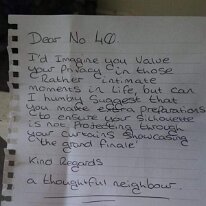 Dear No. 40.
I'd Imagine you Value
your Privacy in those
'Rather' intimate
moments in Life, but can
I humbly Suggest that
you make extra preparations
to ensure your silhouette
is not Protecting through
your curtains showcasing
'the grand finale'
Kind Regards
a thoughtful neighbour.